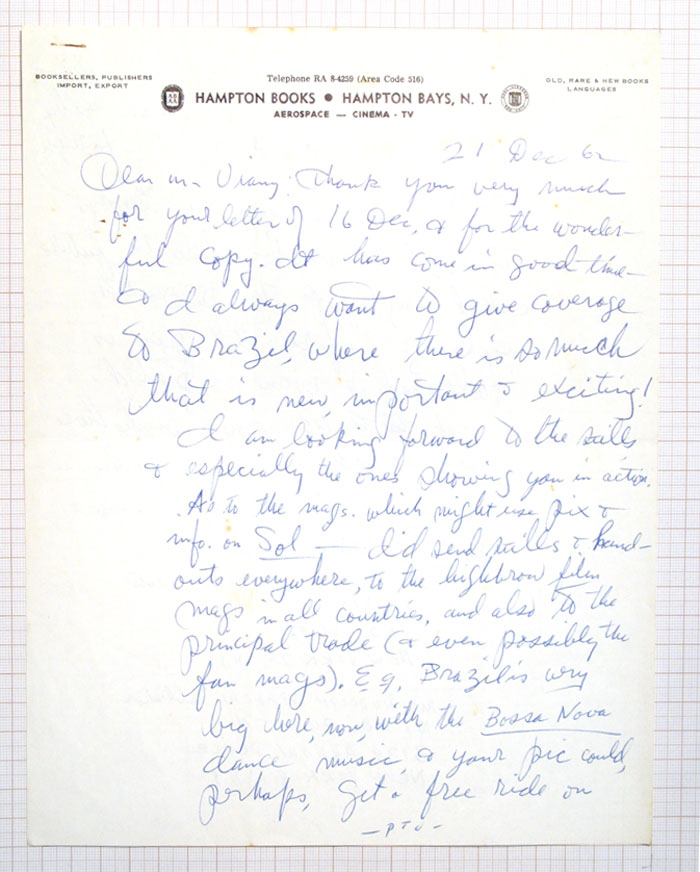 BOOKSELLERS, PUBLISHERS
IMPORT, EXPORT
Telephone RA 8-4259 (Area Code 516)
HAMPTON BOOKS • HAMPTON BAYS, N. Y.
AEROSPACE — CINEMA - TV
OLD, RARE & NEW BOOKS
LANGUAGES
21 Dec 62
Dear Mr Viany: Thank you very much
for your letter of 16 Dec, & for the wonder-
ful copy. It has come in good time—
& I always want to give coverage
to Brazil, where there is so much
that is new, important & exciting!
I am looking forward to the stills
& especially the ones showing you in action.
As to the mags. which might use pix &
info. on Sol — I'd send stills & hand-
outs everywhere, to the highbrow film
mags in all countries, and also to the
principal trade (& even possibly the
fan mags). E.g. Brazil is very
big here, now, with the Bossa Nova
dance music, & your pic could,
perhaps, get a free ride on
— PTO —